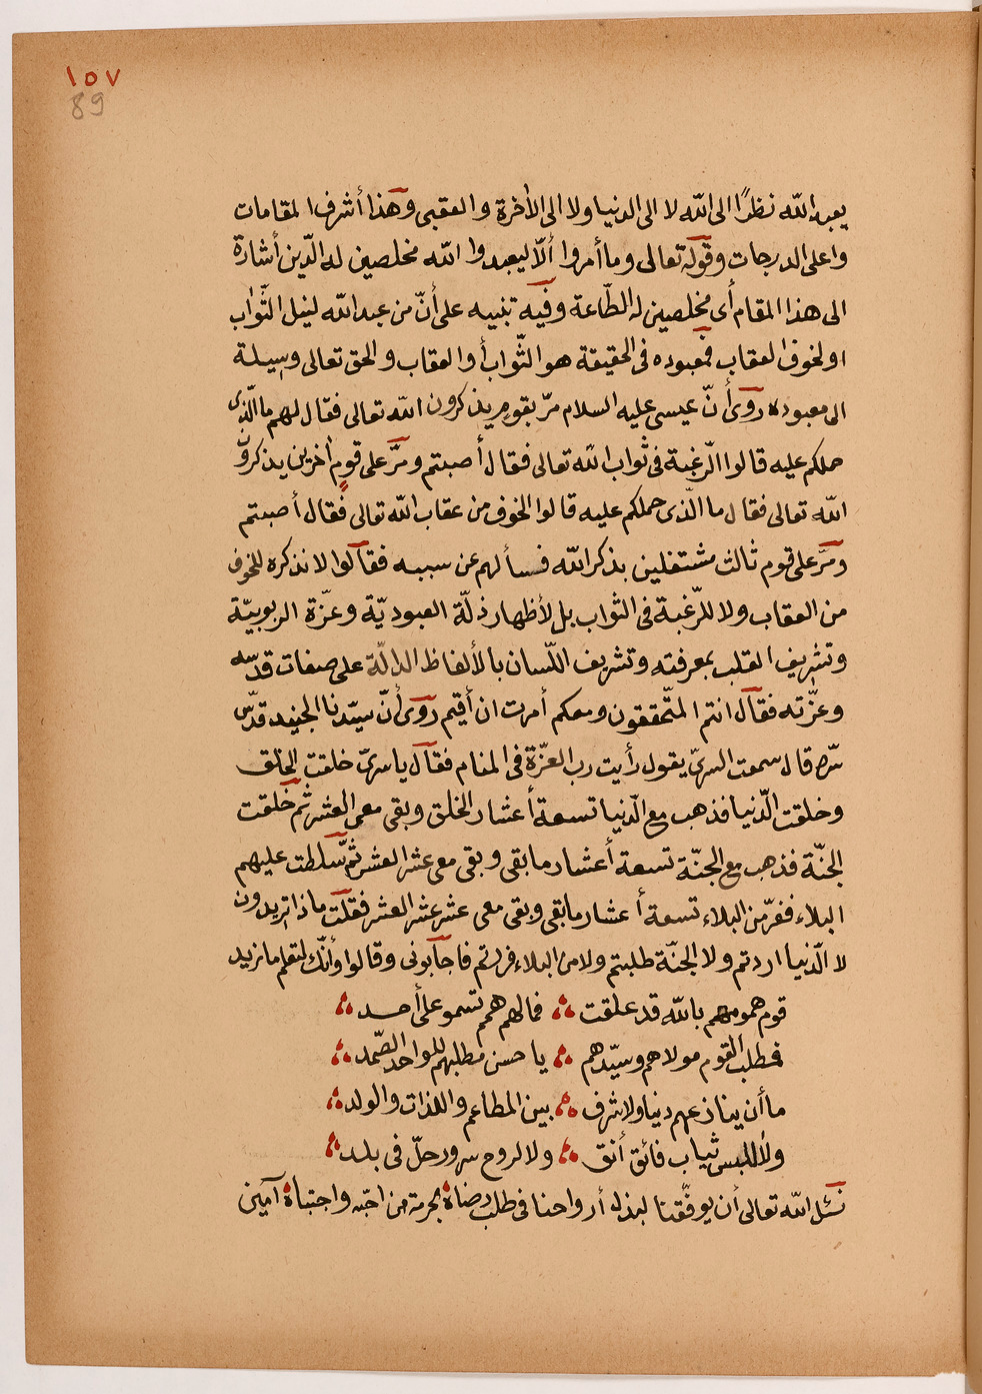 ١٥٧
89
يعبد الله نظرًا الى الله لا الى الدنيا ولا الى الأخرة والعقبى وهذا أشرف المقامات
واعلى الدرجات وقوله تعالى وما أمروا ألّا ليعبدوا الله مخلصين له الدّين أشارة
الى هذا المقام أى مخلصين له الطّاعة وفيه تنبيه على أنّ من عبد الله لينل الثّواب
اولخوف العقاب فمعبوده فى الحقيقة هو الثّواب أو العقاب والحق تعالى وسيلة
الى معبوده روى أنّ عيسى عليه السلام مرّ بقوم يذكرون الله تعالى فقال لهم ما الّذى
حملكم عليه قالوا الرّغبة فى ثواب الله تعالى فقال أصبتم ومرّ على قوم أخرين يذكرون
الله تعالى فقال ما الّذى حملكم عليه قالوا الخوف من عقاب الله تعالى فقال أصبتم
ومرّ على قوم ثالث مشتغلين بذكر الله فسألهم عن سببه فقالوا لا نذكره للخوف
من العقاب ولا للرّغبة فى الثواب بل لأظهار ذلّة العبوديّة وعزّة الربوبيّة
وتشريف القلب بمعرفته وتشريف اللّسان بالألفاظ الدالّة على صفات قدسه
وعزّته فقال انتم المتّحققون ومعكم أمرت ان أقيم روى أنّ سيّدنا الجنيد قدّس
سّره قال سمعت السرىّ يقول رأيت رب العزّة فى المنام فقال ياسرىّ خلقت الخلق
وخلقت الدّنيا فذهب مع الدّنيا تسعة أعشار الخلق وبقى معى العشر ثم خلقت
الجنّة فذهب مع الجنّة تسعة أعشار ما بقى وبقى معى عشر العشر ثم سّلطت عليهم
البلاء ففرّ من البلاء تسعة أعشار ما بقى وبقى معى عشر عشر العشر فقلت ماذا تريدون
لا الدّنيا اردتم ولا الجنّة طلبتم ولا من البلاء فررتم فاجابونى وقالوا وأنّك لتعلم ما نريد
قوم همومهم بالله قد علقت ؞ فما لهم همم تسمو على أحد ؞
فمطلب القوم مولاهم وسيّدهم ؞ يا حسن مطلبهم للواحد الصّمد ؞
ما أن ينازعهم دنيا ولا شرف ؞ بين المطاعم واللذات والولد ؞
ولا للبس ثياب فائق أنق ؞ ولا لروح سرور حلّ فى بلد ؞
نسئل الله تعالى أن يوفّقنا لبذل أرواحنا فى طلب رضاه بحرمة من احبّه واجتباه آمين